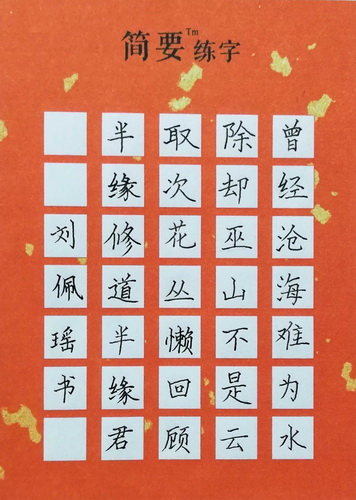 简要™练字
曾经沧海难为水
除却巫山不是云
取次花丛懒回顾
半缘修道半缘君
刘佩瑶书